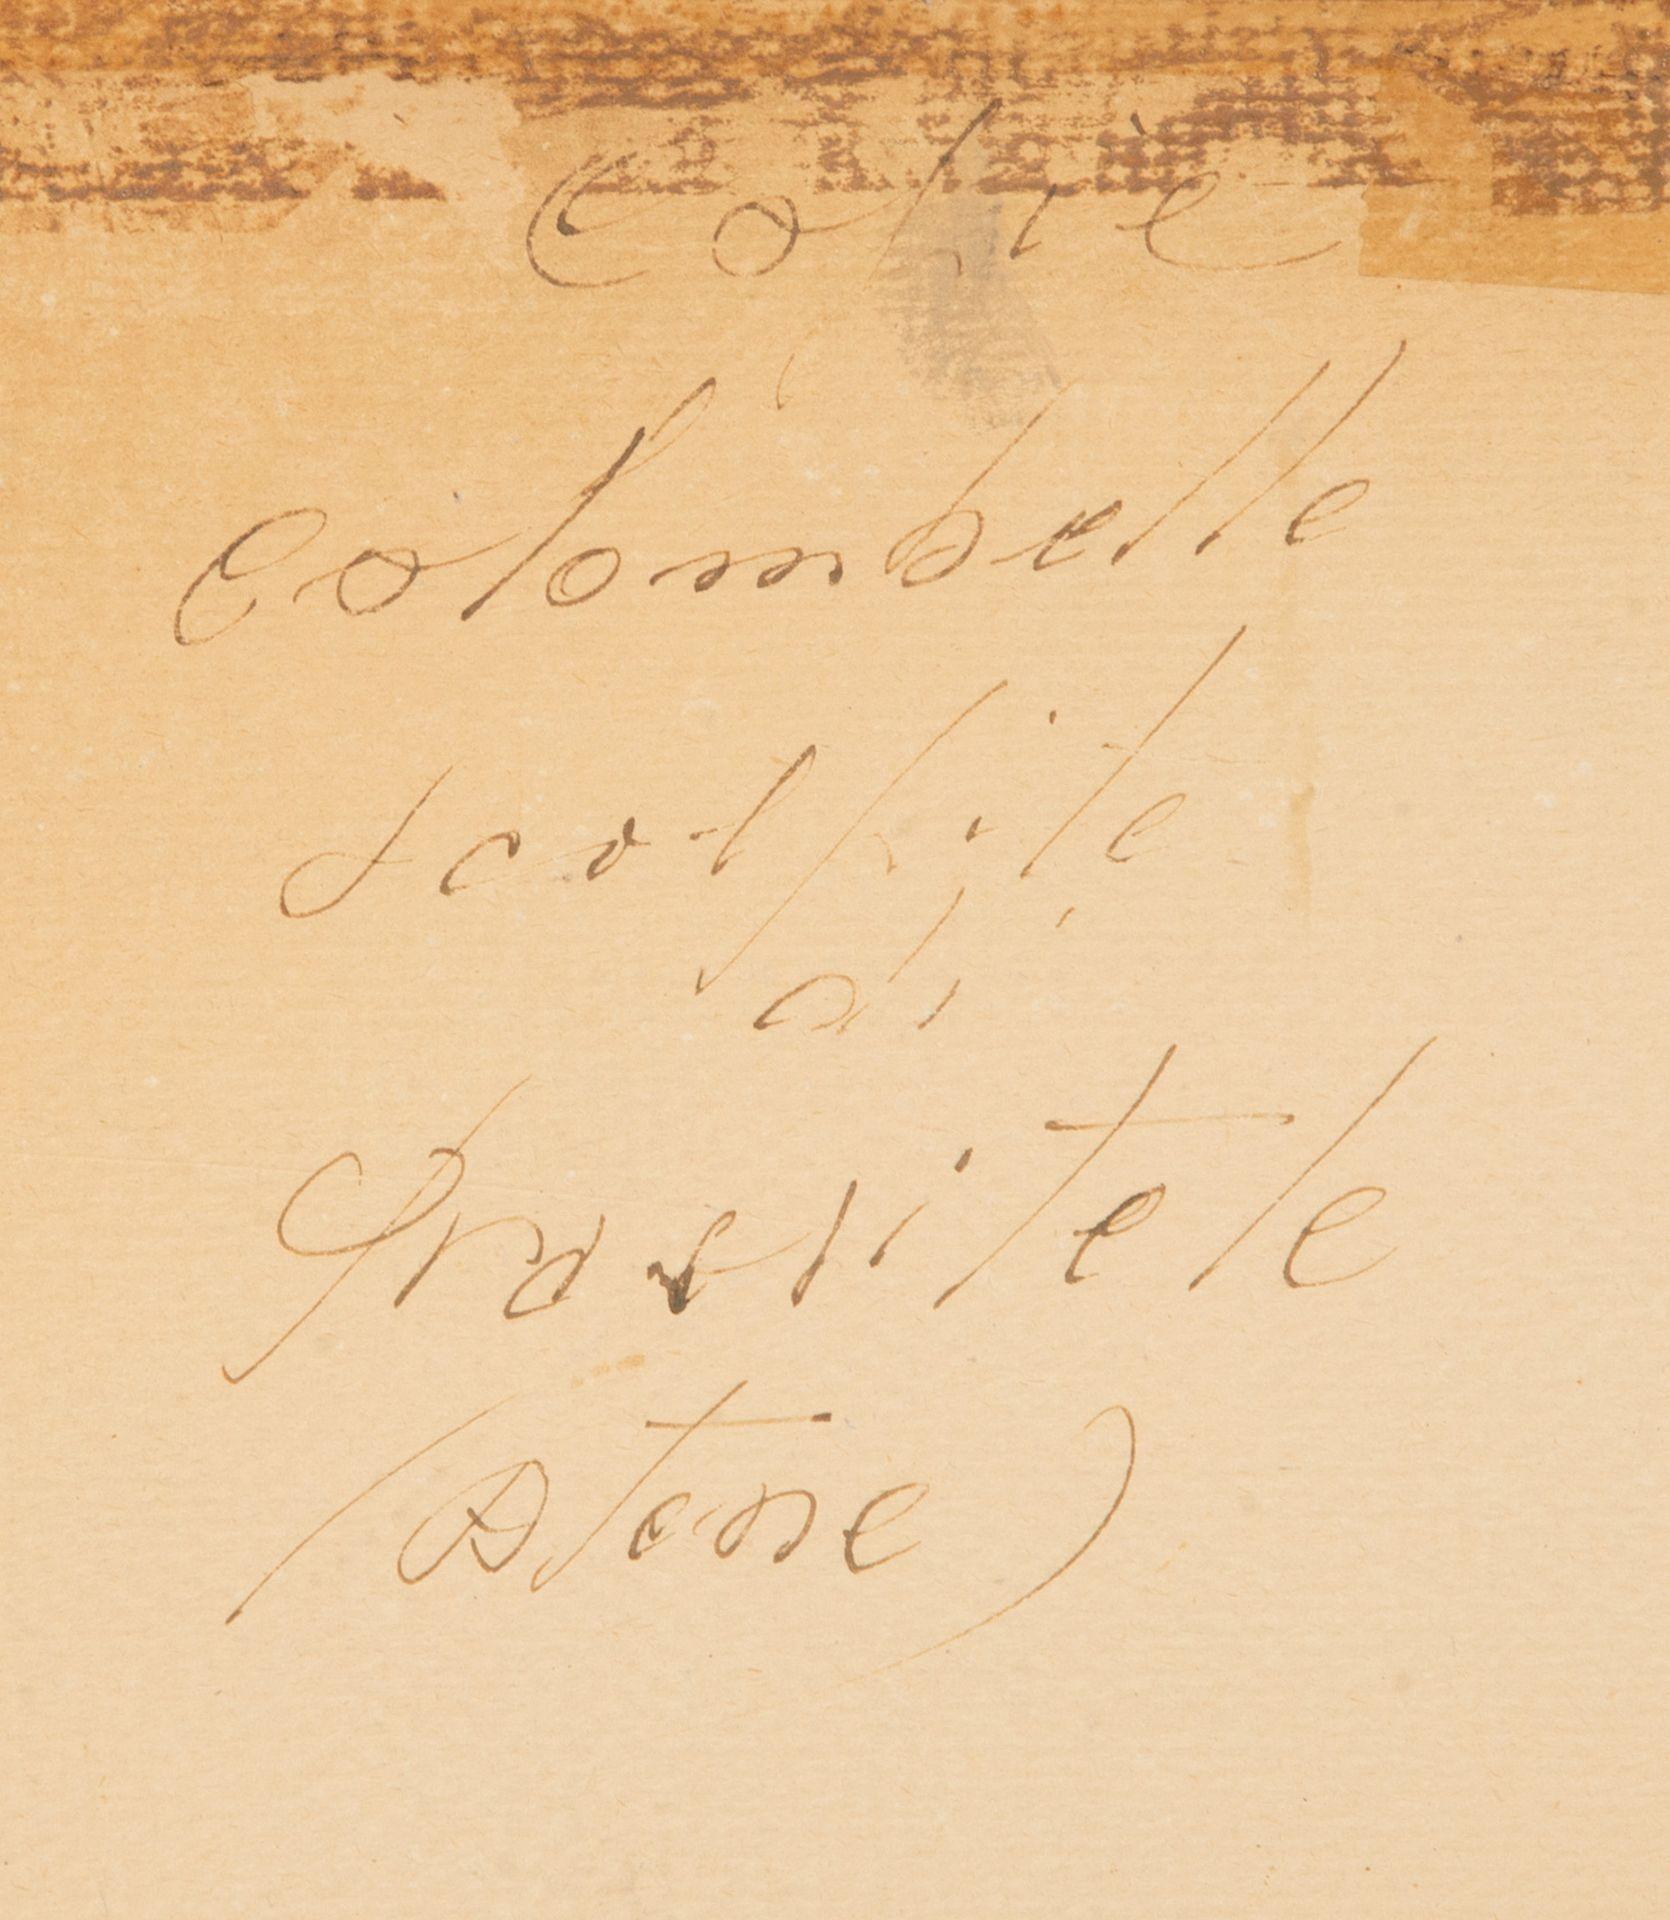 Copie
Colombelle
scolpite
di
Prasitele
(Atene)